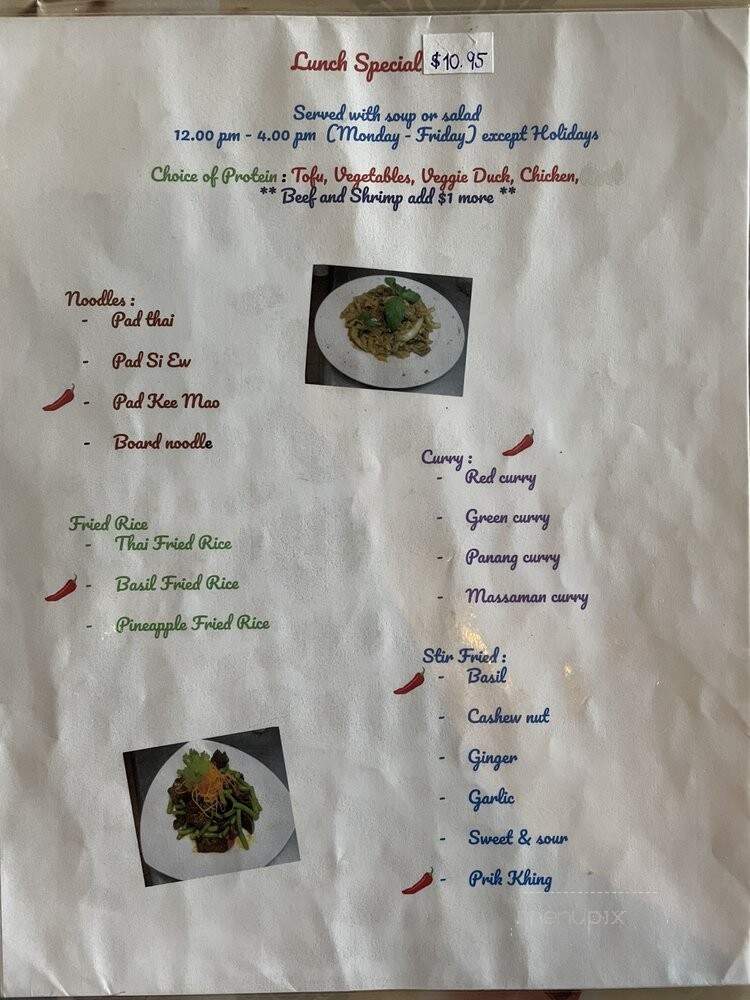 Lunch Special $10.95
Served with soup or salad
12.00 pm - 4.00 pm (Monday - Friday) except Holidays
Choice of Protein : Tofu, Vegetables, Veggie Duck, Chicken,
** Beef and Shrimp add $1 more **
Noodles :
- Pad thai
- Pad Si Ew
- Pad Kee Mao
- Board noodle
Fried Rice
- Thai Fried Rice
- Basil Fried Rice
- Pineapple Fried Rice
Curry :
- Red curry
- Green curry
- Panang curry
- Massaman curry
Stir Fried :
- Basil
- Cashew nut
- Ginger
- Garlic
- Sweet & sour
- Prik Khing
menupix